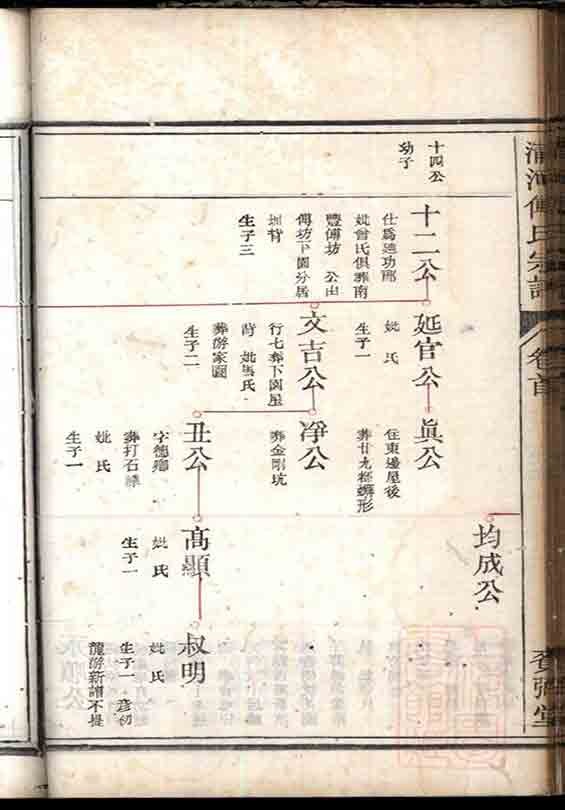 傅氏宗譜
卷首
十四公
幼子
均成公
十二公
仕為迪功郎
妣曾氏俱葬南
豐傅坊 公由
傅坊下園分居
圳背
生子三
延官公
妣 氏
生子一
真公
住東邊屋後
文吉公
行七葬下園屋
背 妣馬氏
葬游家園
生子二
淨公
葬金剛坑
丑公
字德卿
葬打石
妣 氏
生子一
高顯
妣 氏
生子一
叔明
妣 氏
生子一 彥
龍游新譜不提